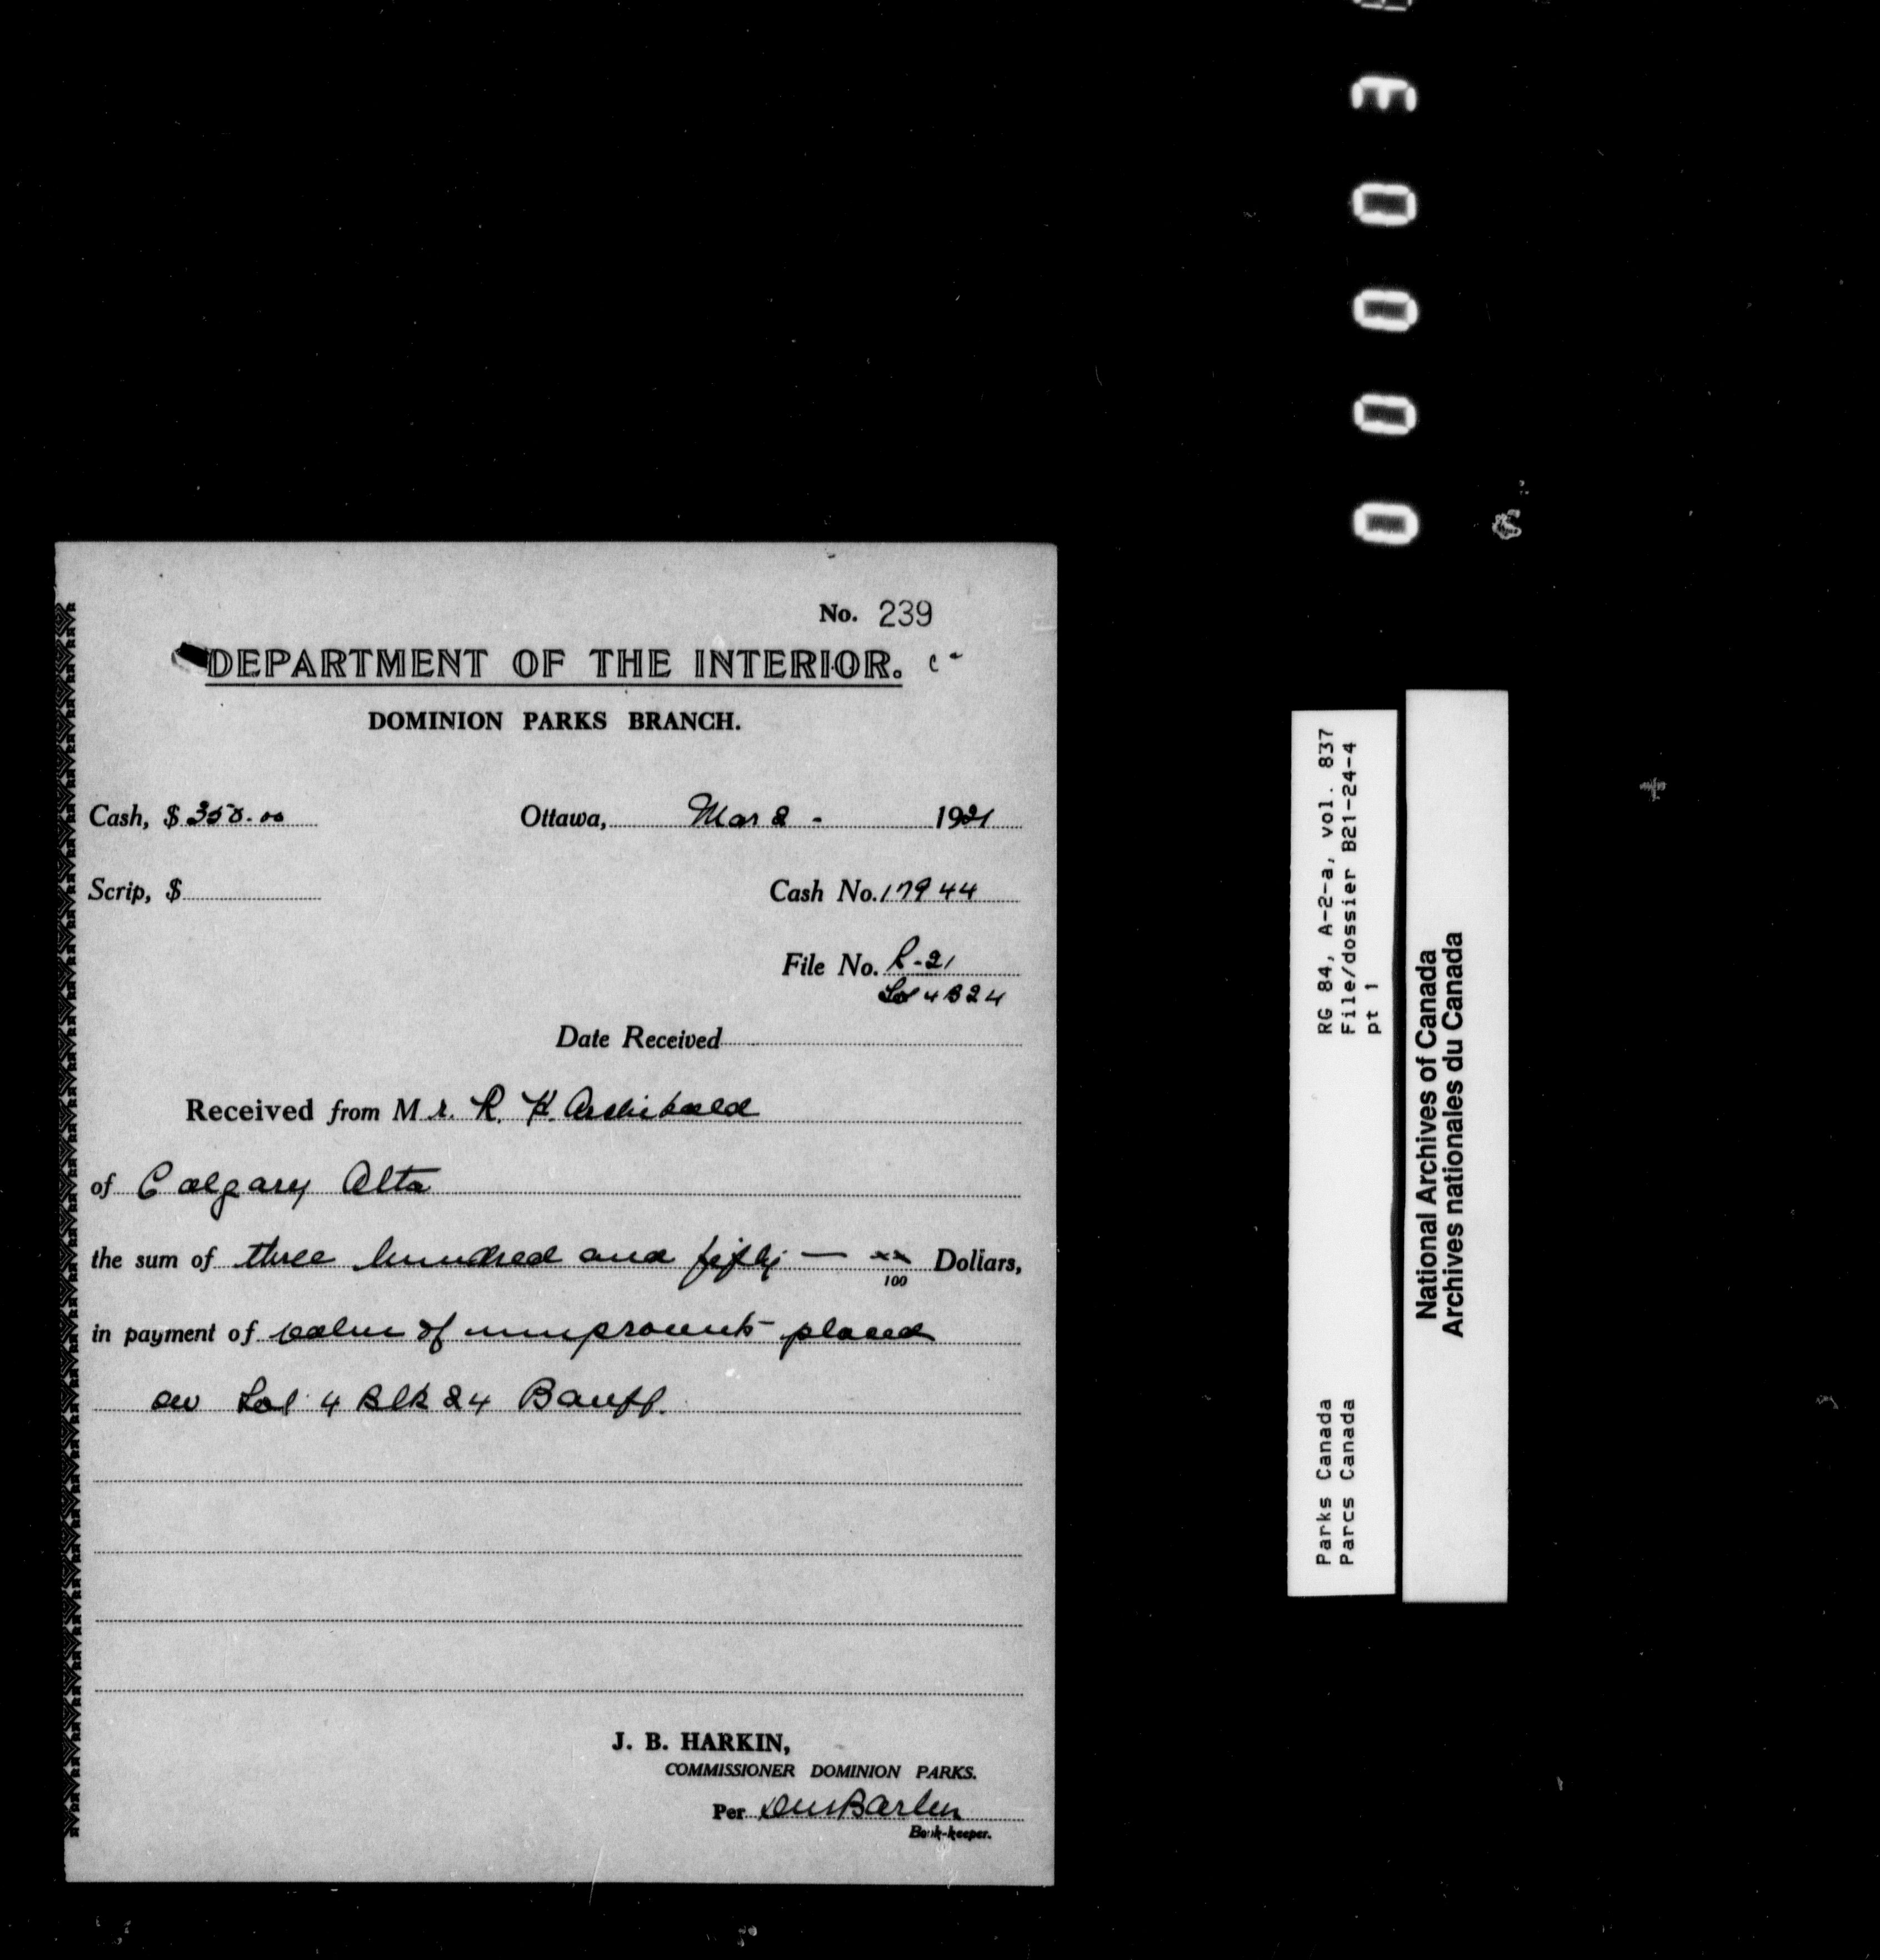 No. 239
DEPARTMENT OF THE INTERIOR.
DOMINION PARKS BRANCH.
Cash, $ 350.00 Ottawa, Mar 2 - 1921
Scrip, $ Cash No. 17944
File No. R-21
Lot 4 B 24
Date Received
Received from Mr. R. K. Archibald
of Calgary Alta
the sum of three hundred and fifty — xx/100 Dollars,
in payment of value of placed
on Lot 4 Blk 24 Banff.
J. B. HARKIN,
COMMISSIONER DOMINION PARKS.
Per
Book-keeper.
RG 84, A-2-a, vol. 837
File/dossier B21-24-4
pt 1
Parks Canada
Parcs Canada
National Archives of Canada
Archives nationales du Canada
00003